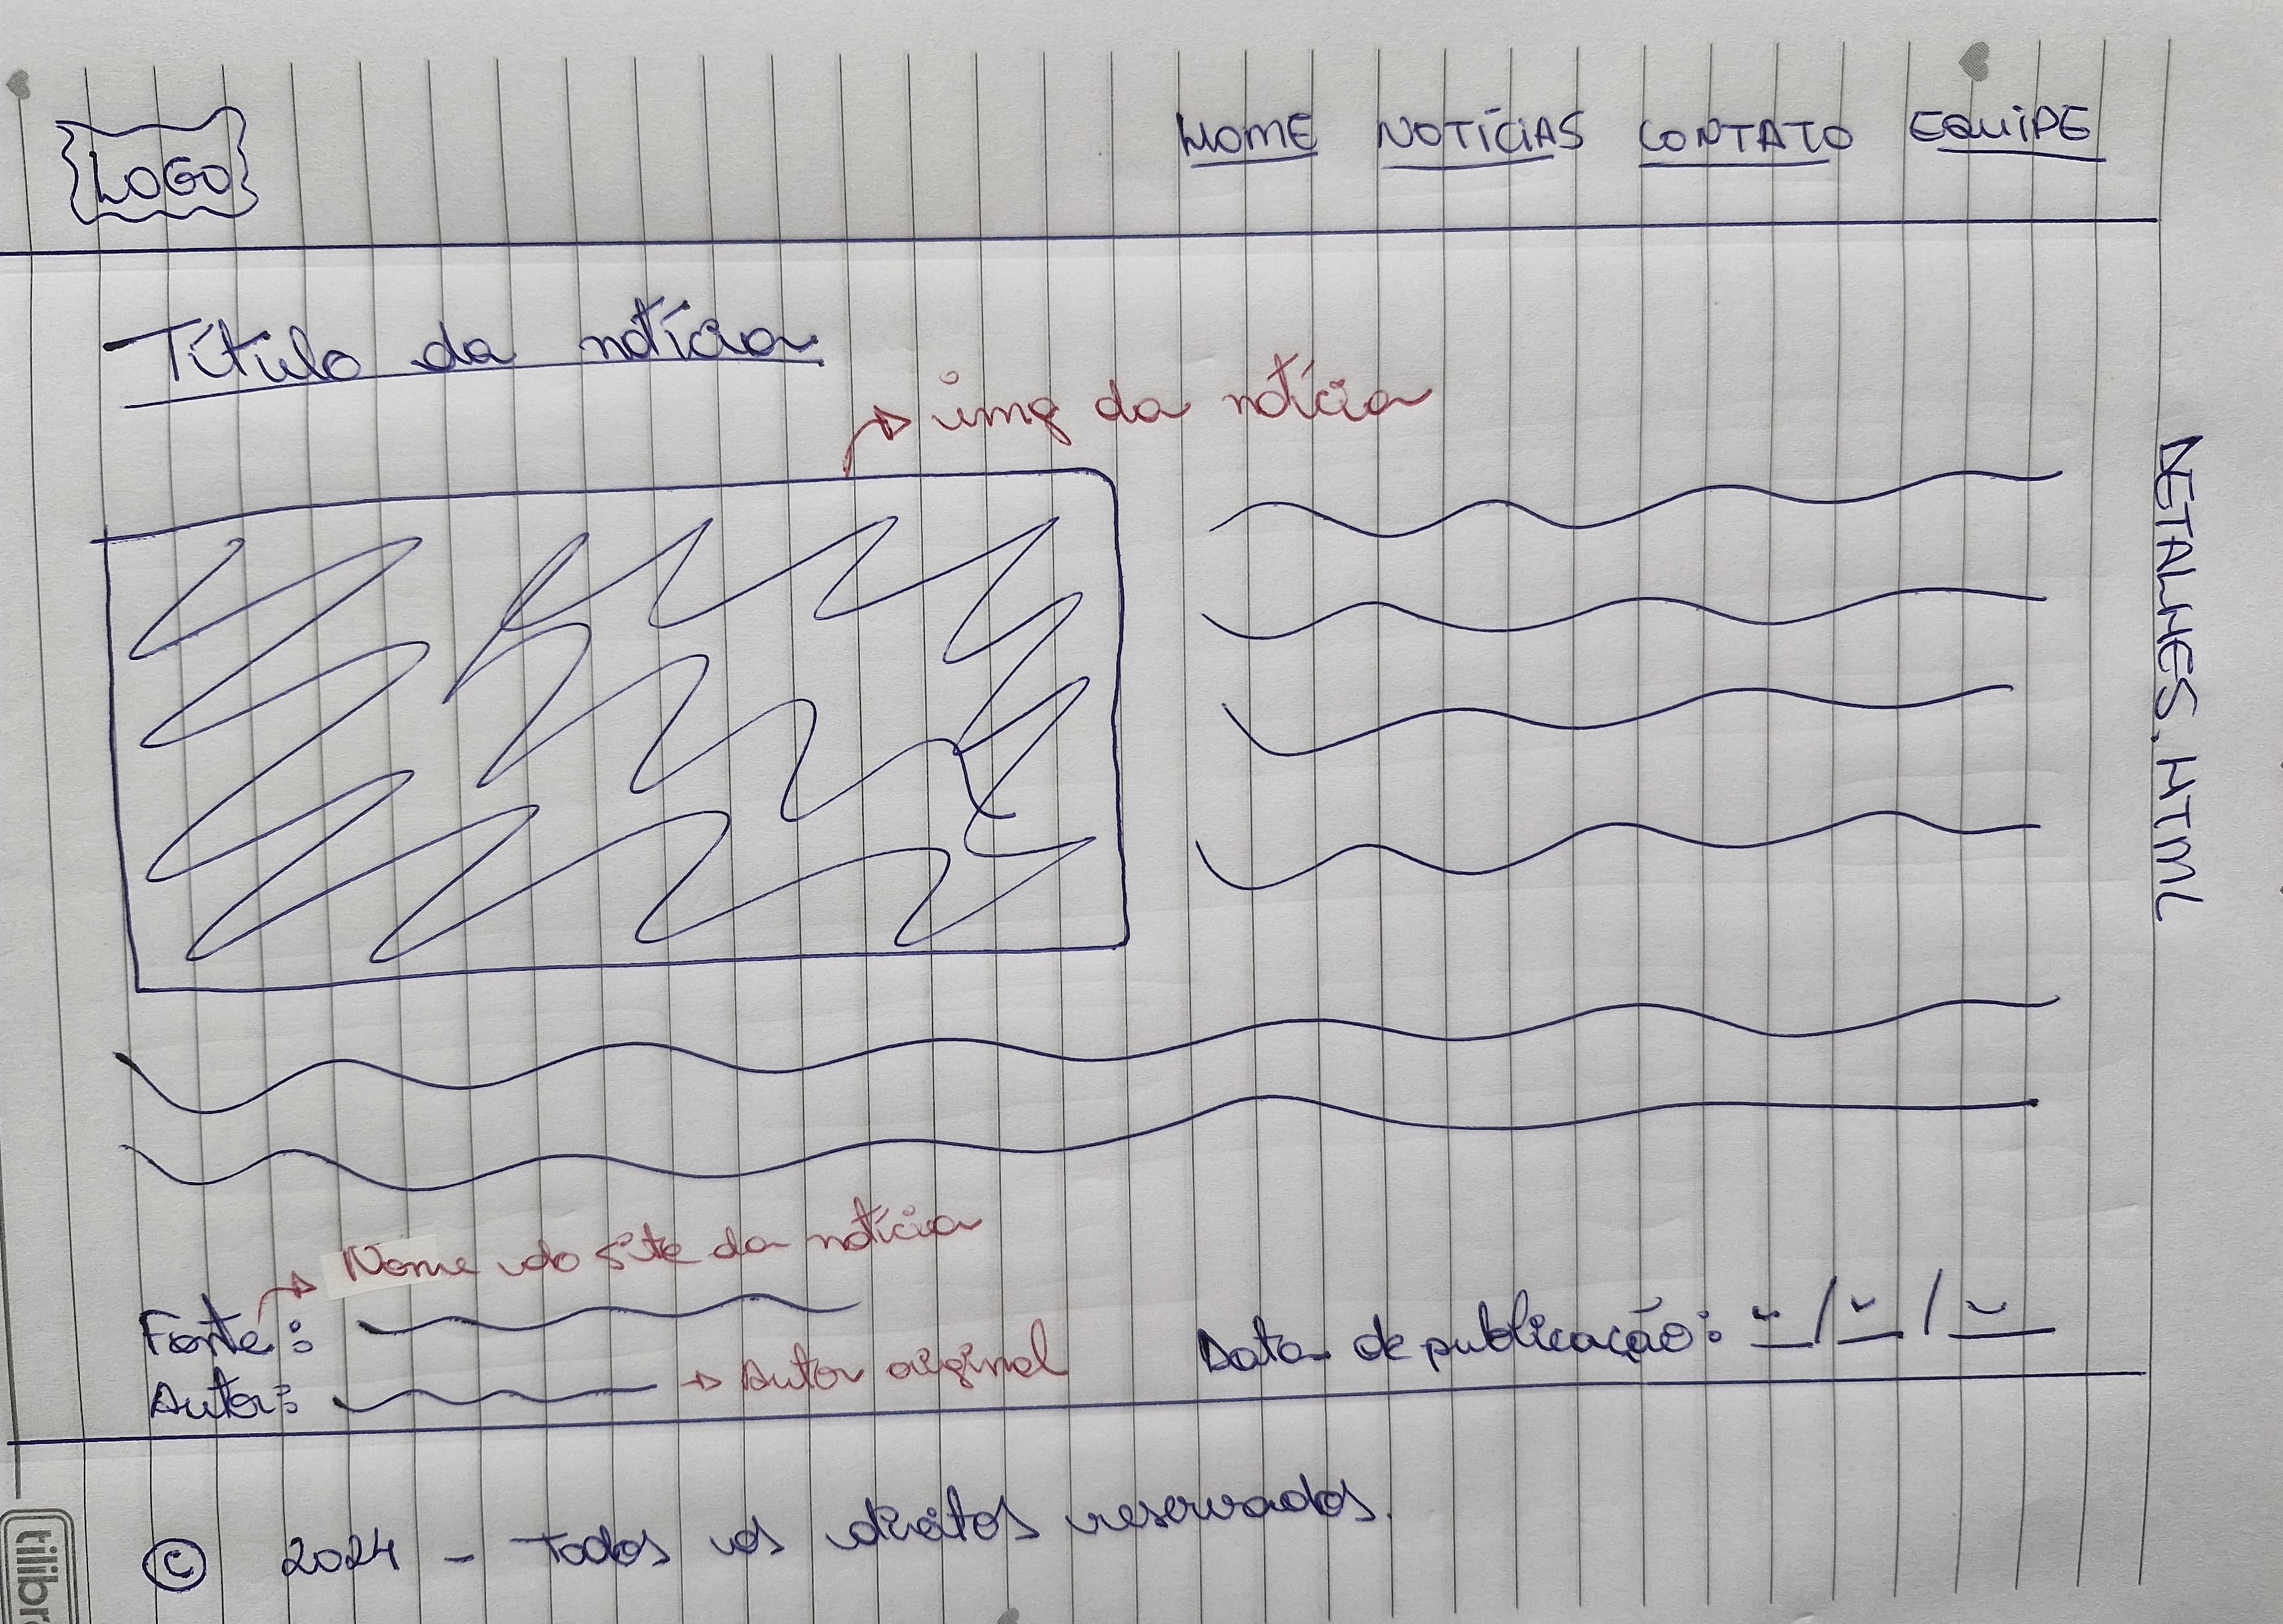 LOGO
HOME NOTÍCIAS CONTATO EQUIPE
Título da notícia
img da notícia
DETALHES.HTML
Nome do site da notícia
Fonte:
Autor: Autor original
Data de publicação: / /
© 2024 - Todos os direitos reservados.
tilibra